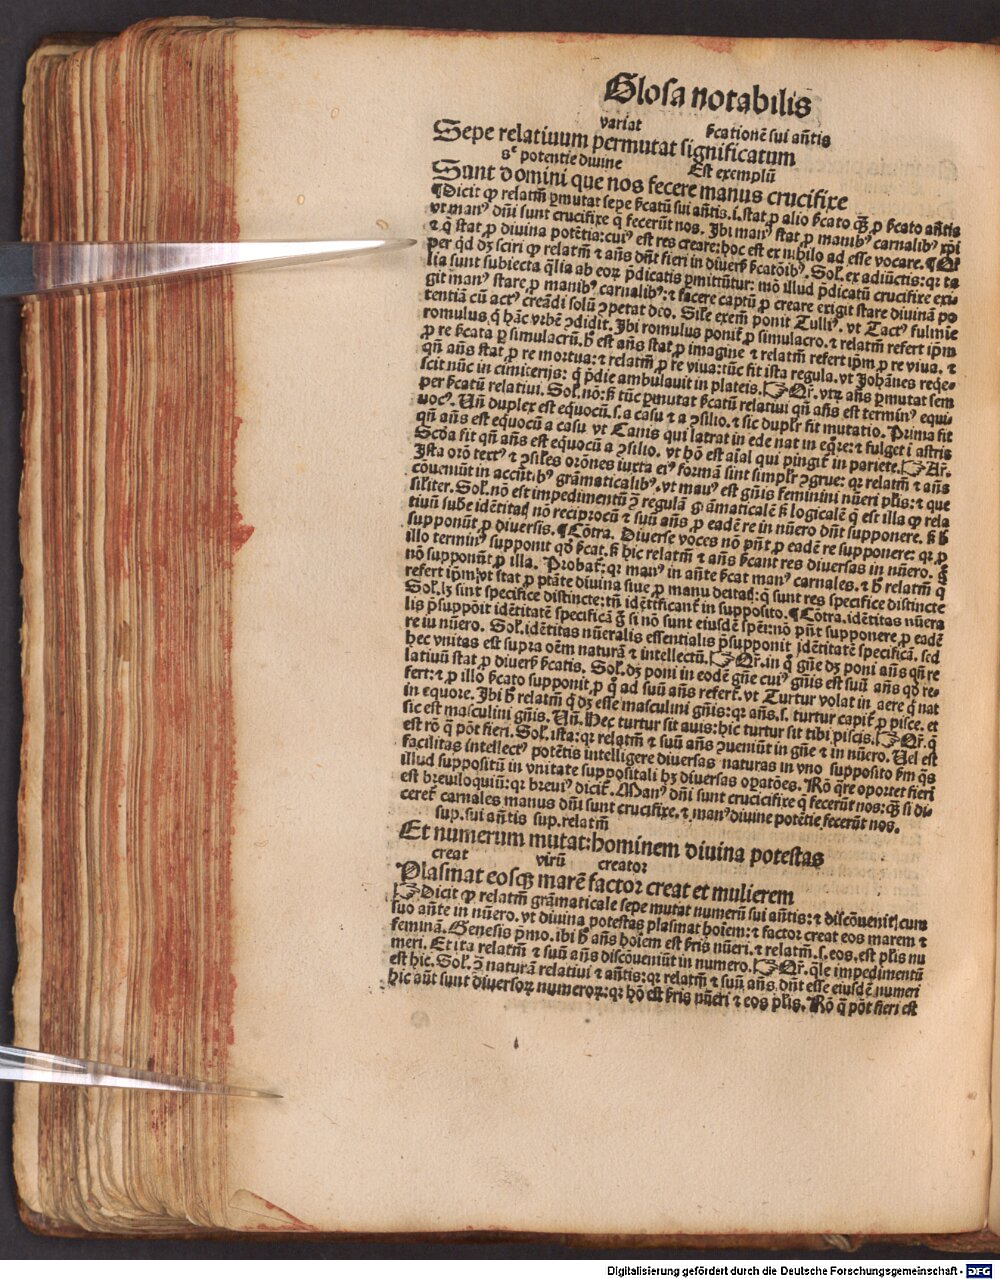 Glosa notabilis
variat ẜcationē sui añtis
Sepe relatiuum permutat significatum
sꝫ potentie diuine Est exemplū
Sunt domini que nos fecere manus crucifixe
¶Dicit ꝙ relatm̄ ꝑmutat sepe ẜcatū sui añtis .i. stat ꝓ alio ẜcato ꝙ̄ ꝓ ẜcato añtis
vt manꝰ dñi sunt crucifixe q̄ fecerūt nos. Ibi manꝰ stat ꝓ manibꝰ carnalibꝰ xp̄i
⁊ q̄ stat ꝓ diuina potētia: cuiꝰ est res creare: hoc est ex nihilo ad esse vocare. ¶Qr̄
per qd̄ dꝫ sciri ꝙ relatm̄ ⁊ añs dñt fieri in diuerẜ ẜcatōibꝰ. Sol̄. ex adiūctis: qꝛ ta
lia sunt subiecta q̄lia ab eoꝝ p̄dicatis ꝑmittūtur: mō illud p̄dicatū crucifixe exi
git manꝰ stare ꝓ manibꝰ carnalibꝰ: ⁊ facere captū ꝓ creare exigit stare diuinā po
tentiā cū actꝰ creādi solū ꝯpetat deo. Sil̄e exem̄ ponit Tulliꝰ. vt Tactꝰ fulmīe
romulus q̄ hāc vrbē ꝯdidit. Ibi romulus ponit̄ ꝓ simulacro. ⁊ relatm̄ refert ip̄m
ꝓ re ẜcata ꝑ simulacrū. h̄ est añs stat ꝓ imagine ⁊ relatm̄ refert ip̄m ꝓ re viua. ⁊
qn̄ añs stat ꝓ re mortua: ⁊ relatm̄ ꝓ re viua: tūc fit ista regula. vt Johānes reqe⸗
scit nūc in cimiterijs: q̄ p̄die ambulauit in plateis. ☞Qr̄. vtꝝ añs ꝑmutat sem
per ẜcatū relatiui. Sol̄. nō: ẜꝫ tūc ꝑmutat ẜcatū relatiui qn̄ añs est terminꝰ equi
uocꝰ. Uñ duplex est equocū .s. a casu ⁊ a ꝯsilio. ⁊ sic duplr̄ fit mutatio. Prima fit
qn̄ añs est equocū a casu vt Canis qui latrat in ede nat in eq̄re: ⁊ fulget ī astris
Scd̄a fit qn̄ añs est equocū a ꝯsilio. vt hō est aīal qui pingit̄ in pariete. ☞Ar̄.
Ista orō textꝰ ⁊ ꝯsiles orōnes iuxta eiꝰ formā sint simplr̄ ꝯgrue: qꝛ relatm̄ ⁊ añs
cōueniūt in accn̄tibꝰ grāmaticalibꝰ. vt manꝰ est gñis feminini nūeri pl̄is: ⁊ que
sil̄iter. Sol̄. nō est impedimentū ꝯ̄ regulā grāmaticalē ẜꝫ logicalē q̄ est illa ꝙ rela
tiuū sube idētitatꝭ nō reciprocū ⁊ suū añs ꝓ eadē re in nūero dn̄t supponere. ẜꝫ h̄
supponūt ꝓ diuersis. ¶Cōtra. Diuerse voces nō pn̄t ꝓ eadē re supponere: qꝛ ꝓ
illo terminꝰ supponit qd̄ ẜcat. ẜꝫ hic relatm̄ ⁊ añs ẜcant res diuersas in nūero. g̊
nō supponūt ꝓ illa. Probat̄: qꝛ manꝰ in añte ẜcat manꝰ carnales. ⁊ h̄ relatm̄ q̄
refert ip̄m vt stat ꝓ ptāte diuina siue ꝓ manu deitatꝭ: q̄ sunt res specifice distincte
Sol̄. lꝫ sint specifice distincte: tn̄ idētificant̄ in supposito. ¶Cōtra. idētitas nūera
lis p̄suppōit idētitatē specificā g̊ si nō sunt eiusdē spēi: nō pn̄t supponere ꝓ eadē
re iu nūero. Sol̄. idētitas nūeralis essentialis p̄supponit idētitatē specificā. sed
hec vnitas est supra oēm naturā ⁊ intellectū. ☞Qr̄. in q̊ gn̄e dꝫ poni añs qn̄ re
latiuū stat ꝓ diuerẜ ẜcatis. Sol̄. dꝫ poni in eodē gn̄e cuiꝰ gñis est suū añs qd̄ re⸗
fert: ⁊ ꝓ illo ẜcato supponit ꝓ q̊ ad suū añs refert̄. vt Turtur volat in aere q̄ nat
in equore. Ibi h̄ relatm̄ q̄ dꝫ esse masculini gñis: qꝛ añs .s. turtur capit̄ ꝓ pisce. et
sic est masculini gñis. Uñ. Hec turtur sit auis: hic turtur sit tibi piscis. ☞Qr̄. q̄
est rō q̄ pōt fieri. Sol̄. ista: qꝛ relatm̄ ⁊ suū añs ꝯueniūt in gn̄e ⁊ in nūero. Uel est
facilitas intellectꝰ potētis intelligere diuersas naturas in vno supposito ẜm q̄s
illud suppositū in vnitate suppositali hꝫ diuersas oꝑatōes. Rō q̄re oportet fieri
est breuiloquiū: qꝛ breuiꝰ dicit̄. Manꝰ dñi sunt crucicifixe q̄ fecerūt nos: qꝫ si di⸗
ceret̄ carnales manus dñi sunt crucifixe. ⁊ manꝰ diuine potētie fecerūt nos.
sup. sui añtis sup. relatm̄
Et numerum mutat: hominem diuina potestas
creat virū creator
Plasmat eosqꝫ marē factor creat et mulierem
☞Dicit ꝙ relatm̄ grāmaticale sepe mutat numerū sui añtis: ⁊ discōuenit cum
suo añte in nūero. vt diuina potestas plasmat hoiem: ⁊ factor creat eos marem ⁊
feminā. Genesis p̄mo. ibi h̄ añs hoiem est ẜris nūeri. ⁊ relatm̄ .s. eos. est pl̄is nu
meri. Et ita relatm̄ ⁊ suū añs discōueniūt in numero. ☞Qr̄. q̄le impedimentū
est hic. Sol̄. ꝯ̄ naturā relatiui ⁊ añtis: qꝛ relatm̄ ⁊ suū añs dn̄t esse eiusdē numeri
hic aūt sunt diuersoꝝ numeroꝝ: qꝛ hō est ẜris nūeri ⁊ eos pl̄is. Rō q̄ pōt fieri est
Digitalisierung gefördert durch die Deutsche Forschungsgemeinschaft - DFG